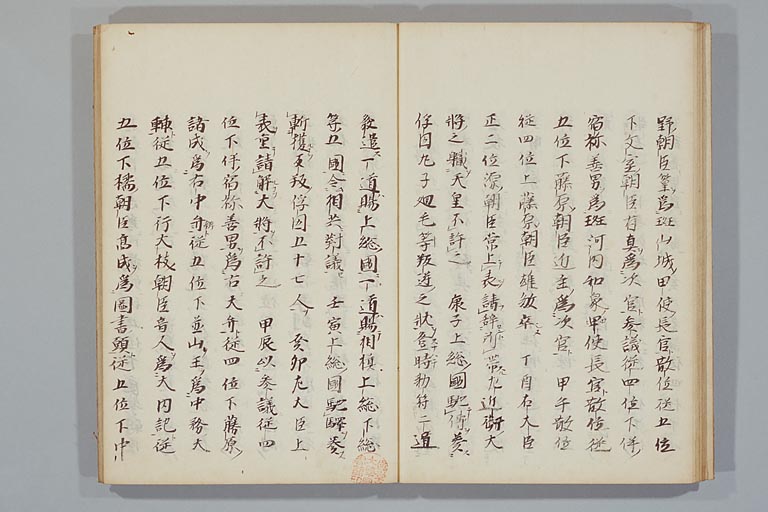 野朝臣篁為班山城田使長官散位従五位
下文室朝臣有真為次官参議従四位下伴
宿祢善男為班河内和泉田使長官散位従
五位下藤原朝臣近主為次官 甲午散位
従四位上藤原朝臣雄敏卒 丁酉右大臣
正二位源朝臣常上表請辞所帯左近衛大
将之職天皇不許之 庚子上総國馳傳奏
俘囚丸子廻毛等叛逆之状登時勅符二通
發遣一道賜上総國一道賜相模上総下総
等五國令相共討議 壬寅上総國馳驛奏
斬獲反叛俘囚五十七人 癸卯左大臣上
表重請解大将不許之 甲辰以参議従四
位下伴宿祢善男為右大弁従四位下藤原
諸成為右中弁従五位下並山王為中務大
輔従五位下行大枝朝臣音人為大内記従
五位下橘朝臣高成為圖書頭従五位下中